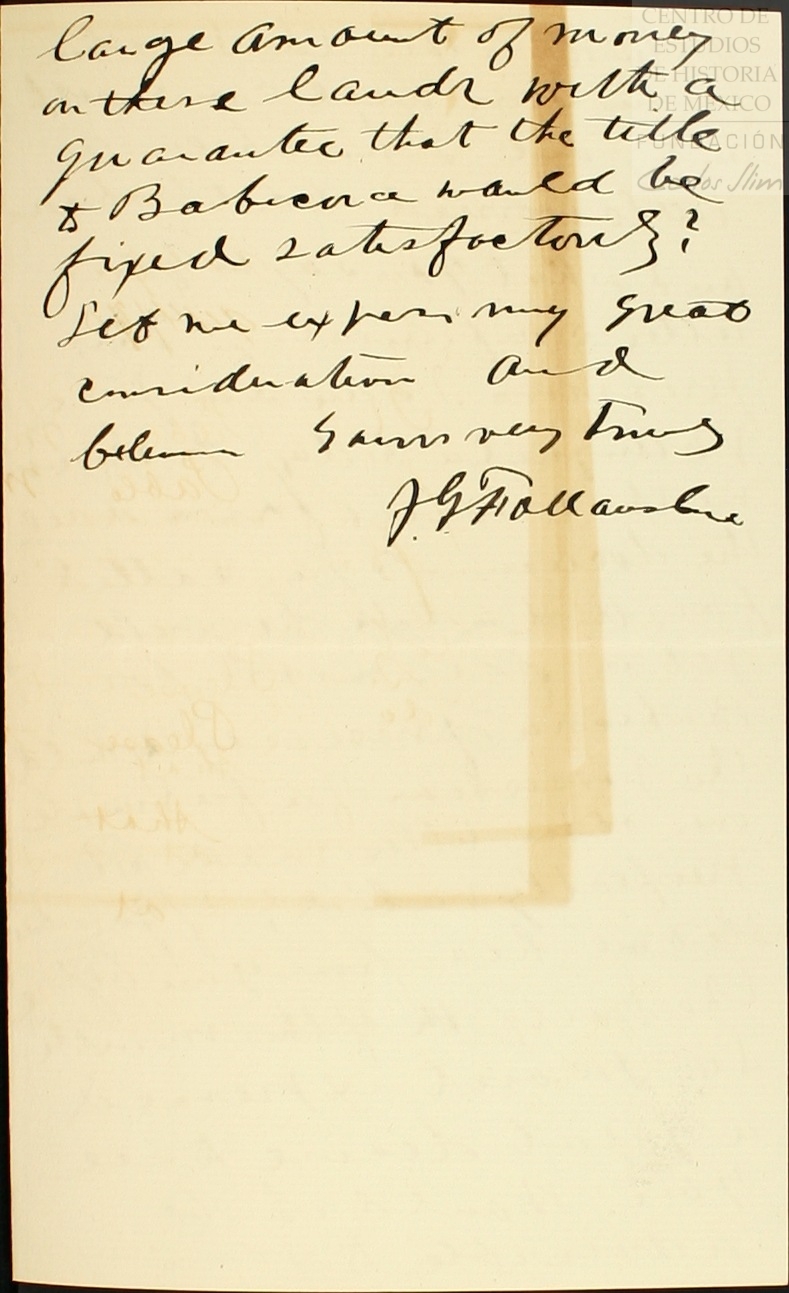 large amount of money
on these lands with a
guarantee that the title
to Babicora would be
fixed satisfactorily?
Let me express my great
consideration and
believe Yours very Truly
J. G. Follansbee
CENTRO DE
ESTUDIOS
DE HISTORIA
DE MEXICO
FUNDACIÓN
Carlos Slim